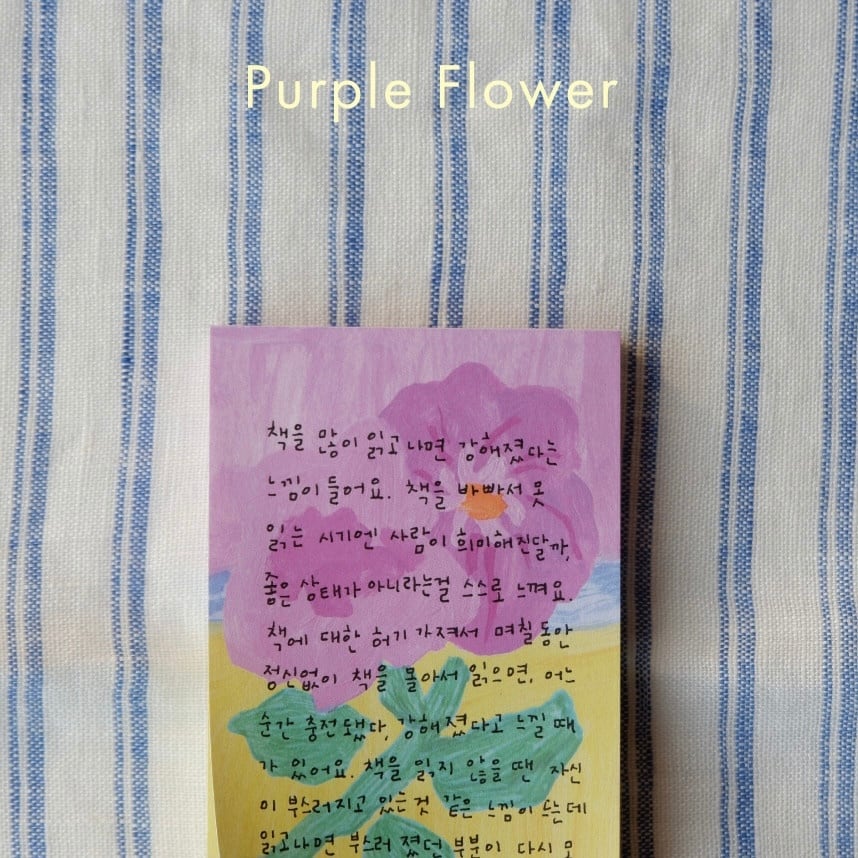 Purple Flower
책을 많이 읽고 나면 강해졌다는
느낌이 들어요. 책을 바빠서 못
읽는 시기엔 사람이 희미해진달까,
좋은 상태가 아니라는걸 스스로 느껴요.
책에 대한 허기가 져서 며칠동안
정신없이 책을 몰아서 읽으면, 어느
순간 충전됐다, 강해졌다고 느낄 때
가 있어요. 책을 읽지 않을 땐 자신
이 부스러지고 있는 것 같은 느낌이 드는데
읽고나면 부스러졌던 부분이 다시 모